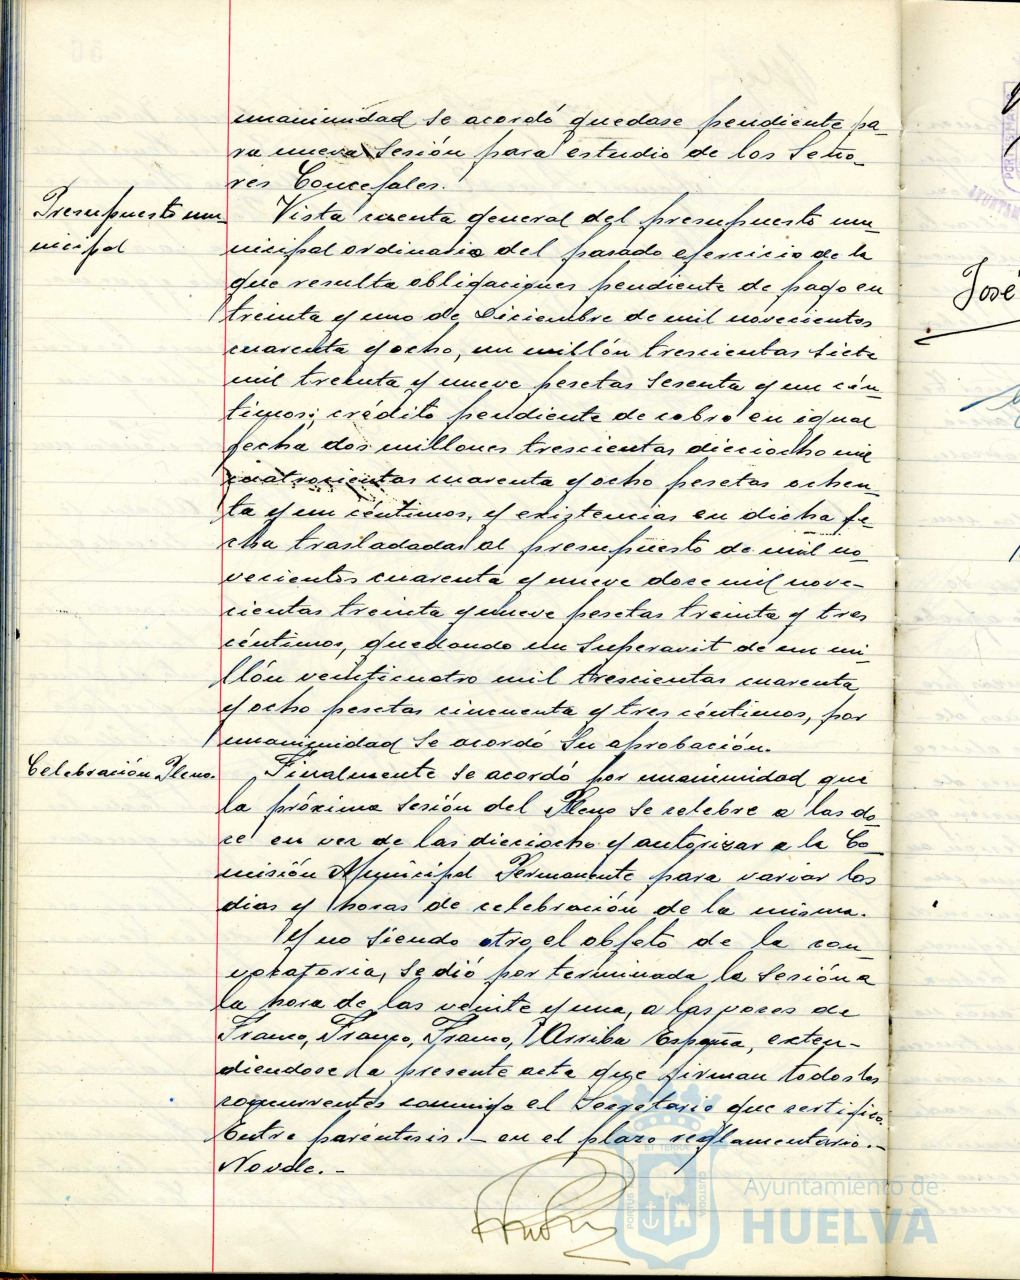 unanimidad se acordó quedase pendiente pa-
ra nueva Sesión para estudio de los Seño-
res Concejales.
Presupuesto mu-
nicipal
Vista cuenta general del presupuesto mu-
nicipal ordinario del pasado ejercicio de la
que resulta obligaciones pendiente de pago en
treinta y uno de Diciembre de mil novecientos
cuarenta y ocho, un millón trescientas siete
mil treinta y nueve pesetas sesenta y un cén-
timos; crédito pendiente de cobro en igual
fecha dos millones trescientas dieciocho mil
cuatrocientas cuarenta y ocho pesetas ochen-
ta y un céntimos, y existencias en dicha fe-
cha trasladadas al presupuesto de mil no-
vecientos cuarenta y nueve doce mil nove-
cientas treinta y nueve pesetas treinta y tres
céntimos, quedando un Superavit de un mi-
llón veinticuatro mil trescientas cuarenta
y ocho pesetas cincuenta y tres céntimos, por
unanimidad se acordó su aprobación.
Celebración Pleno.
Finalmente se acordó por unanimidad que
la próxima sesión del Pleno se celebre a las do-
ce en vez de las dieciocho y autorizar a la Co-
misión Municipal Permanente para variar los
dias y horas de celebración de la misma.
Y no siendo otro el objeto de la con-
vocatoria, se dió por terminada la Sesión a
la hora de las veinte y una, a las voces de
Franco, Franco, Franco, ¡Arriba España, exten-
diendose la presente acta que firman todos los
concurrentes conmigo el Secretario que certifico.
Entre paréntesis.- en el plazo reglamentario.-
No vale.-
José
Ayuntamiento de
HUELVA